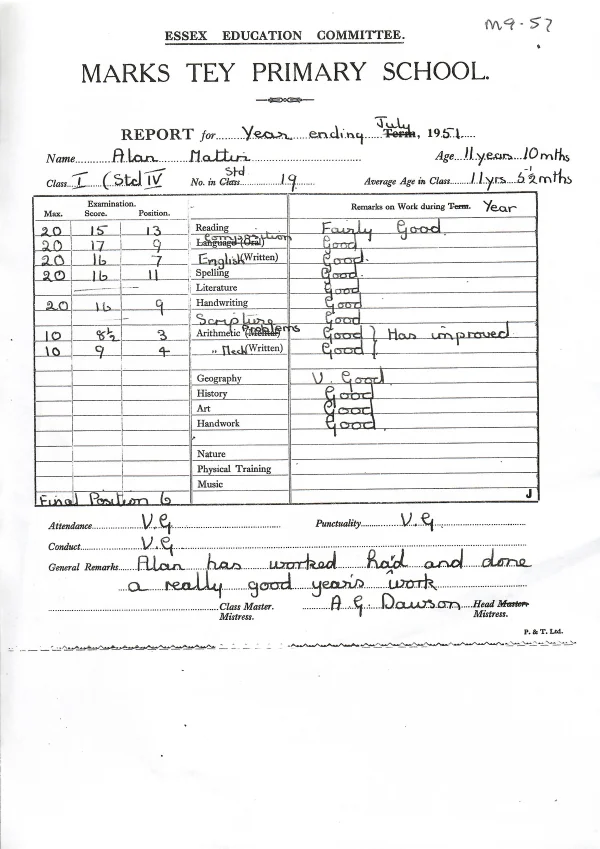 M9-57
ESSEX EDUCATION COMMITTEE.
MARKS TEY PRIMARY SCHOOL.
July
REPORT for Year ending Term, 1951.
Name Alan Mattin Age 11 years 10 mths
Class I (Std IV No. in Class Std 19 Average Age in Class 11 yrs 5½ mths
Examination. Remarks on Work during Term. Year
Max. Score. Position.
20 15 13 Reading Fairly Good.
Composition
20 17 9 Language (Oral) Good
20 16 7 English (Written) Good.
20 16 11 Spelling Good
Literature Good
20 16 9 Handwriting Good
Scripture Good
10 8½ 3 Arithmetic (Mental) Problems Good } Has improved
10 9 4 " Mech (Written) Good
Geography V. Good
History Good
Art Good
Handwork Good
Nature
Physical Training
Music
Final Position 6 J
Attendance V.G Punctuality V.G
Conduct V.G
General Remarks Alan has worked had and done
a really good year's work
Class Master. A. G. Dawson Head Master.
Mistress. Mistress.
P. & T. Ltd.